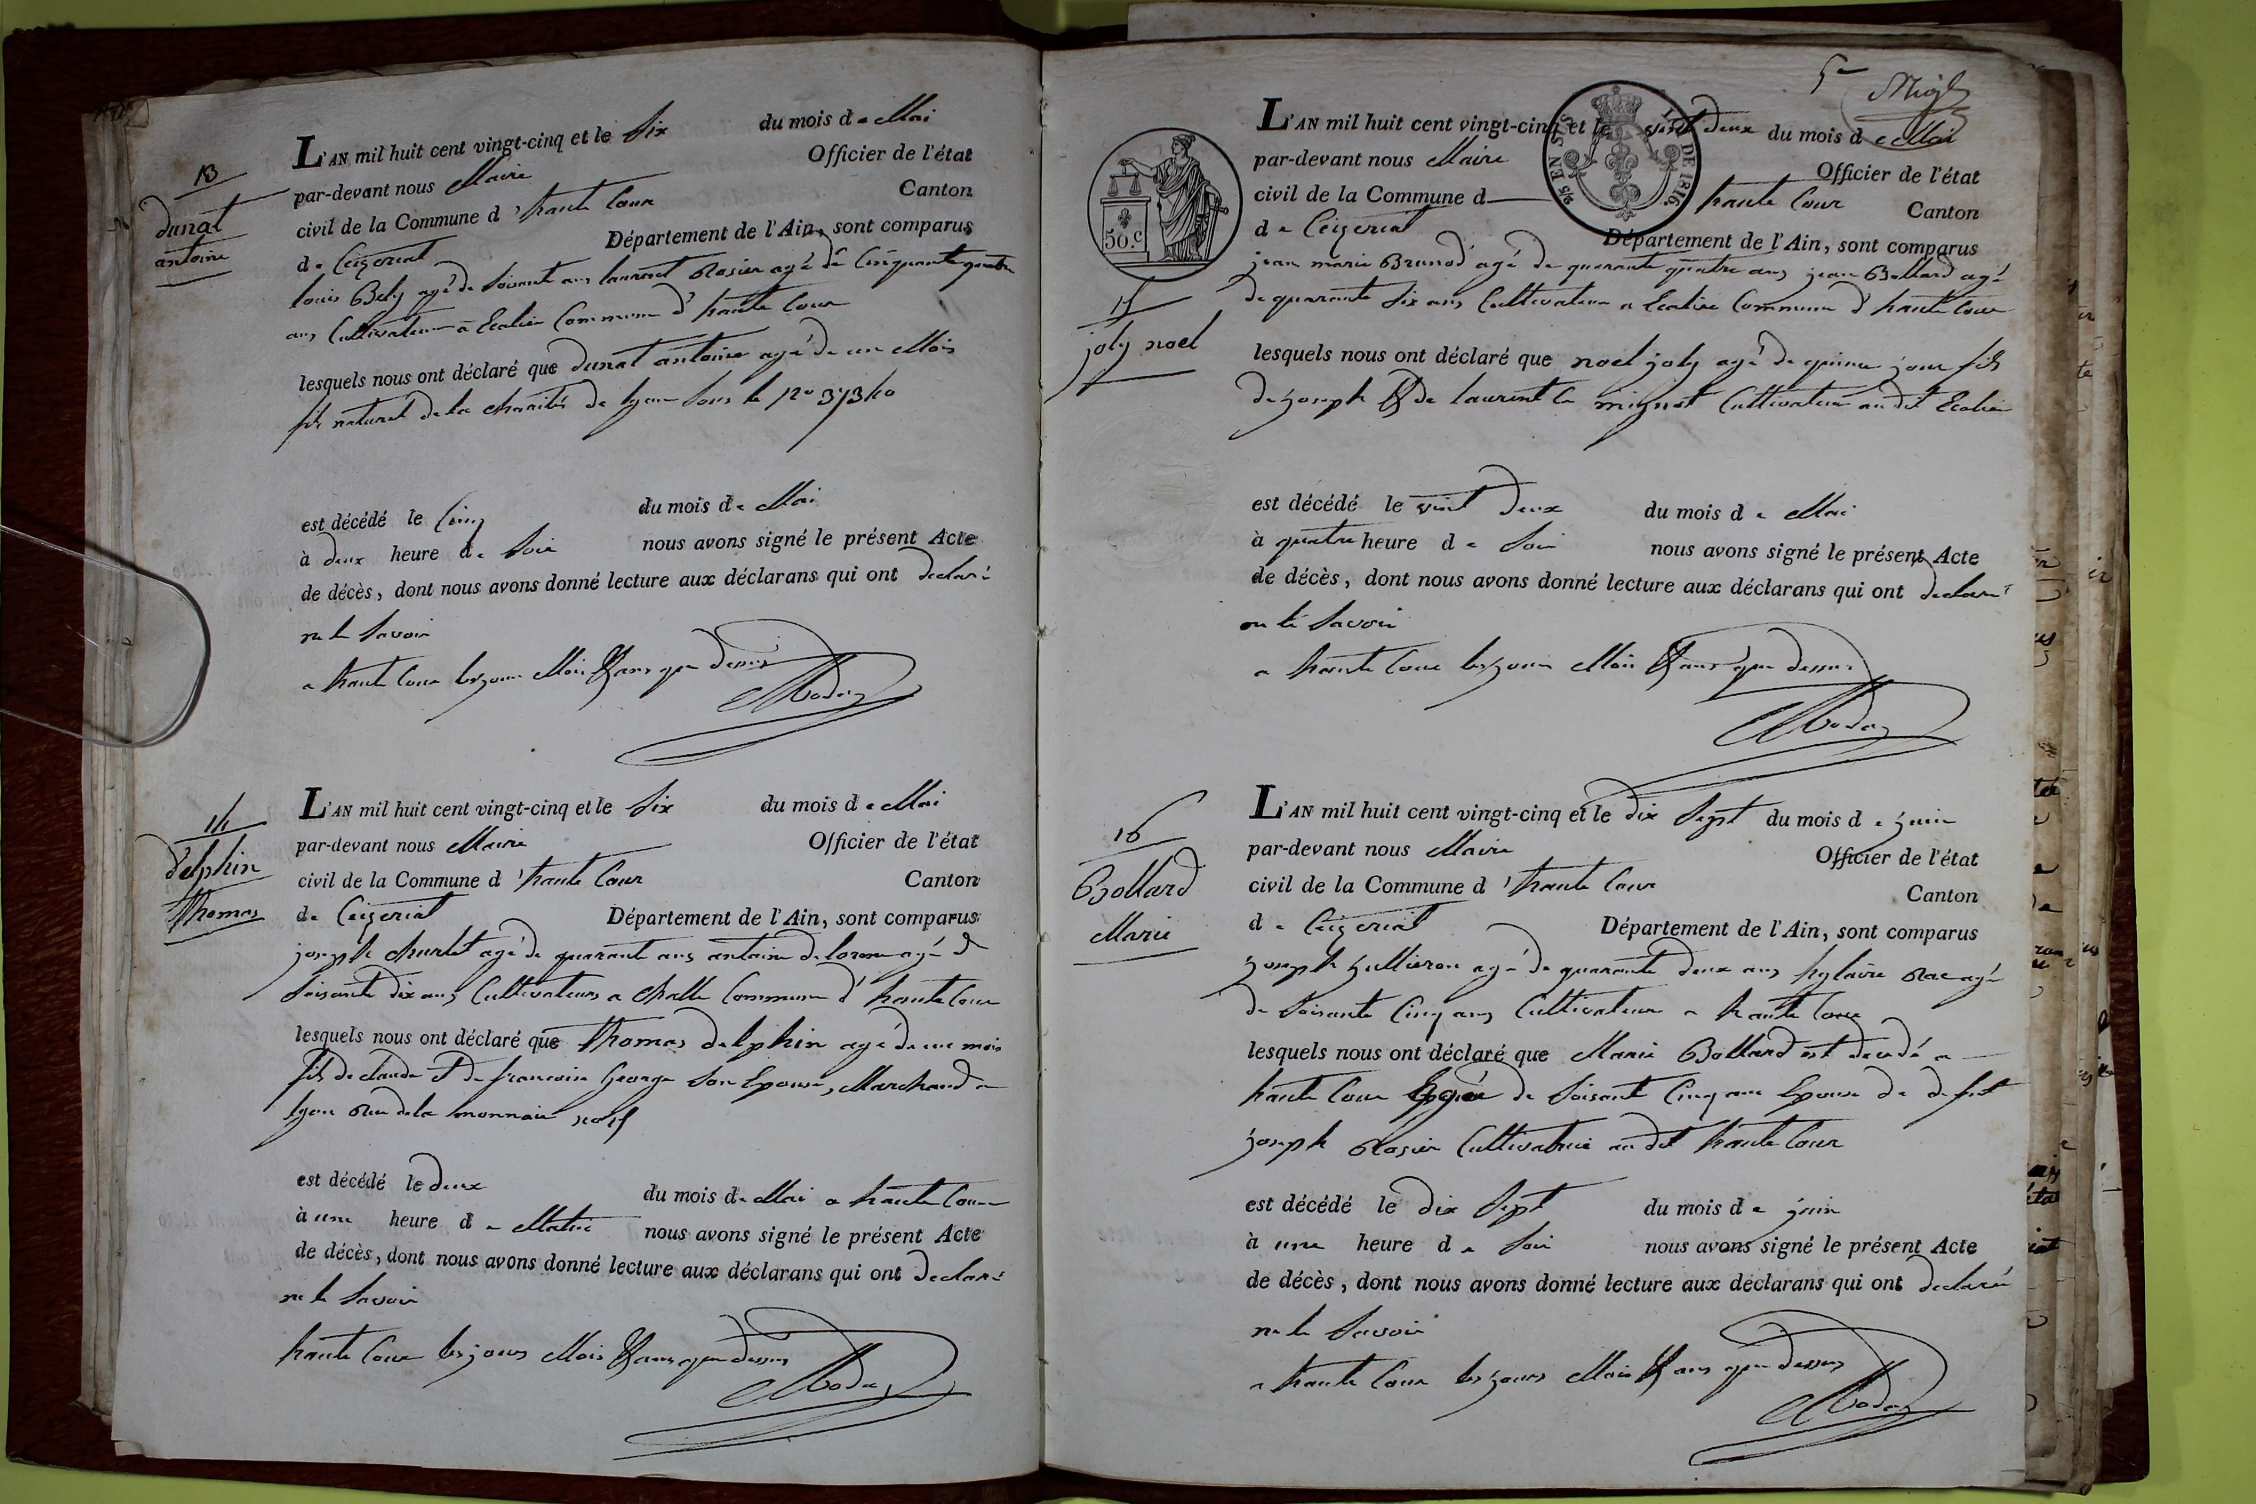 13
dunat
antoine
L'AN mil huit cent vingt-cinq et le Six du mois de Mai
par-devant nous Maire Officier de l'état
civil de la Commune d'haute Cour Canton
de Ceizeriat Département de l'Ain, sont comparus
louis Bely agé de Soisant ans laurent Rosier agé de Cinquante quatre
ans Cultivateur a Commune d'haute Cour
lesquels nous ont déclaré que dunat antoine agé de un Mois
fils naturel de la charité de lyon Sous le no
est décédé le Cinq du mois de Mai
à deux heure de Soir nous avons signé le présent Acte
de décès, dont nous avons donné lecture aux déclarans qui ont declaré
ne le Savoir
a haute Cour les jour Mois & ans que dessus
14
delphin
Thomas
L'AN mil huit cent vingt-cinq et le Six du mois de Mai
par-devant nous Maire Officier de l'état
civil de la Commune d'haute Cour Canton
de Ceizeriat Département de l'Ain, sont comparus
joseph agé de quarante ans antoine delorme agé d
Soisante dix ans Cultivateurs a Challe Commune d'haute Cour
lesquels nous ont déclaré que Thomas delphin agé de un mois
fils de claude et de francoise George Son Epouse, Marchand a
lyon Rue de la monnaie
est décédé le deux du mois de Mai a haute Cour
à une heure de Matin nous avons signé le présent Acte
de décès, dont nous avons donné lecture aux déclarans qui ont declaré
ne le Savoir
haute Cour les jours Mois & ans que dessus
5e
50.c
S/S EN SUS
LOI DE 1816
L'AN mil huit cent vingt-cinq et le vint deux du mois de Mai
par-devant nous Maire Officier de l'état
civil de la Commune d haute Cour Canton
de Ceizeriat Département de l'Ain, sont comparus
15
joly noel
jean marie Brunod agé de quarante quatre ans jean Bollard agé
de quarante Six ans Cultivateur a Commune d'haute Cour
lesquels nous ont déclaré que noel joly agé de quinze jour fils
de joseph & de mignot Cultivateur au dit
est décédé le vint deux du mois de Mai
à quatre heure de Soir nous avons signé le présent Acte
de décès, dont nous avons donné lecture aux déclarans qui ont declaré
Savoir
a haute Cour les jour Mois & ans que dessus
16
Bollard
Marie
L'AN mil huit cent vingt-cinq et le dix Sept du mois de juin
par-devant nous Maire Officier de l'état
civil de la Commune d'haute Cour Canton
de Ceizeriat Département de l'Ain, sont comparus
joseph jullieron agé de quarante deux ans hylaire Rae agé
de Soisante Cinq ans Cultivateur a haute Cour
lesquels nous ont déclaré que Marie Bollard est decedé a
haute Cour de Soisant Cinq ans Epouse de defut
joseph Rosier Cultivatrice au dit haute Cour
est décédé le dix Sept du mois de juin
à une heure de Soir nous avons signé le présent Acte
de décès, dont nous avons donné lecture aux déclarans qui ont declaré
ne le Savoir
a haute Cour les jours Mois & ans que dessus